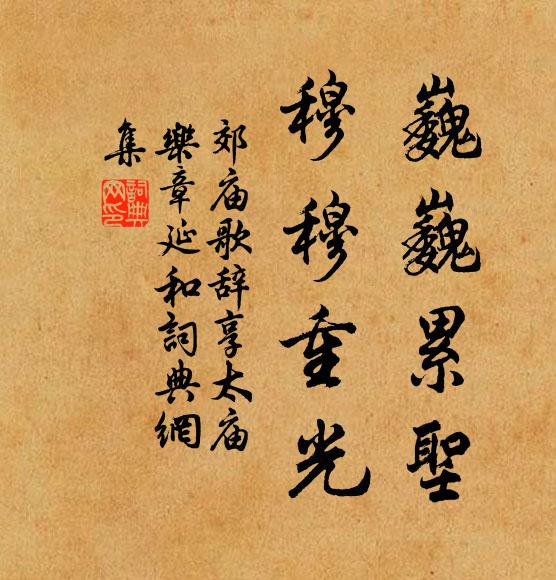 巍巍累聖
穆穆重光
郊庙歌辞享太庙
樂章延和詞典網
集
詞典网印